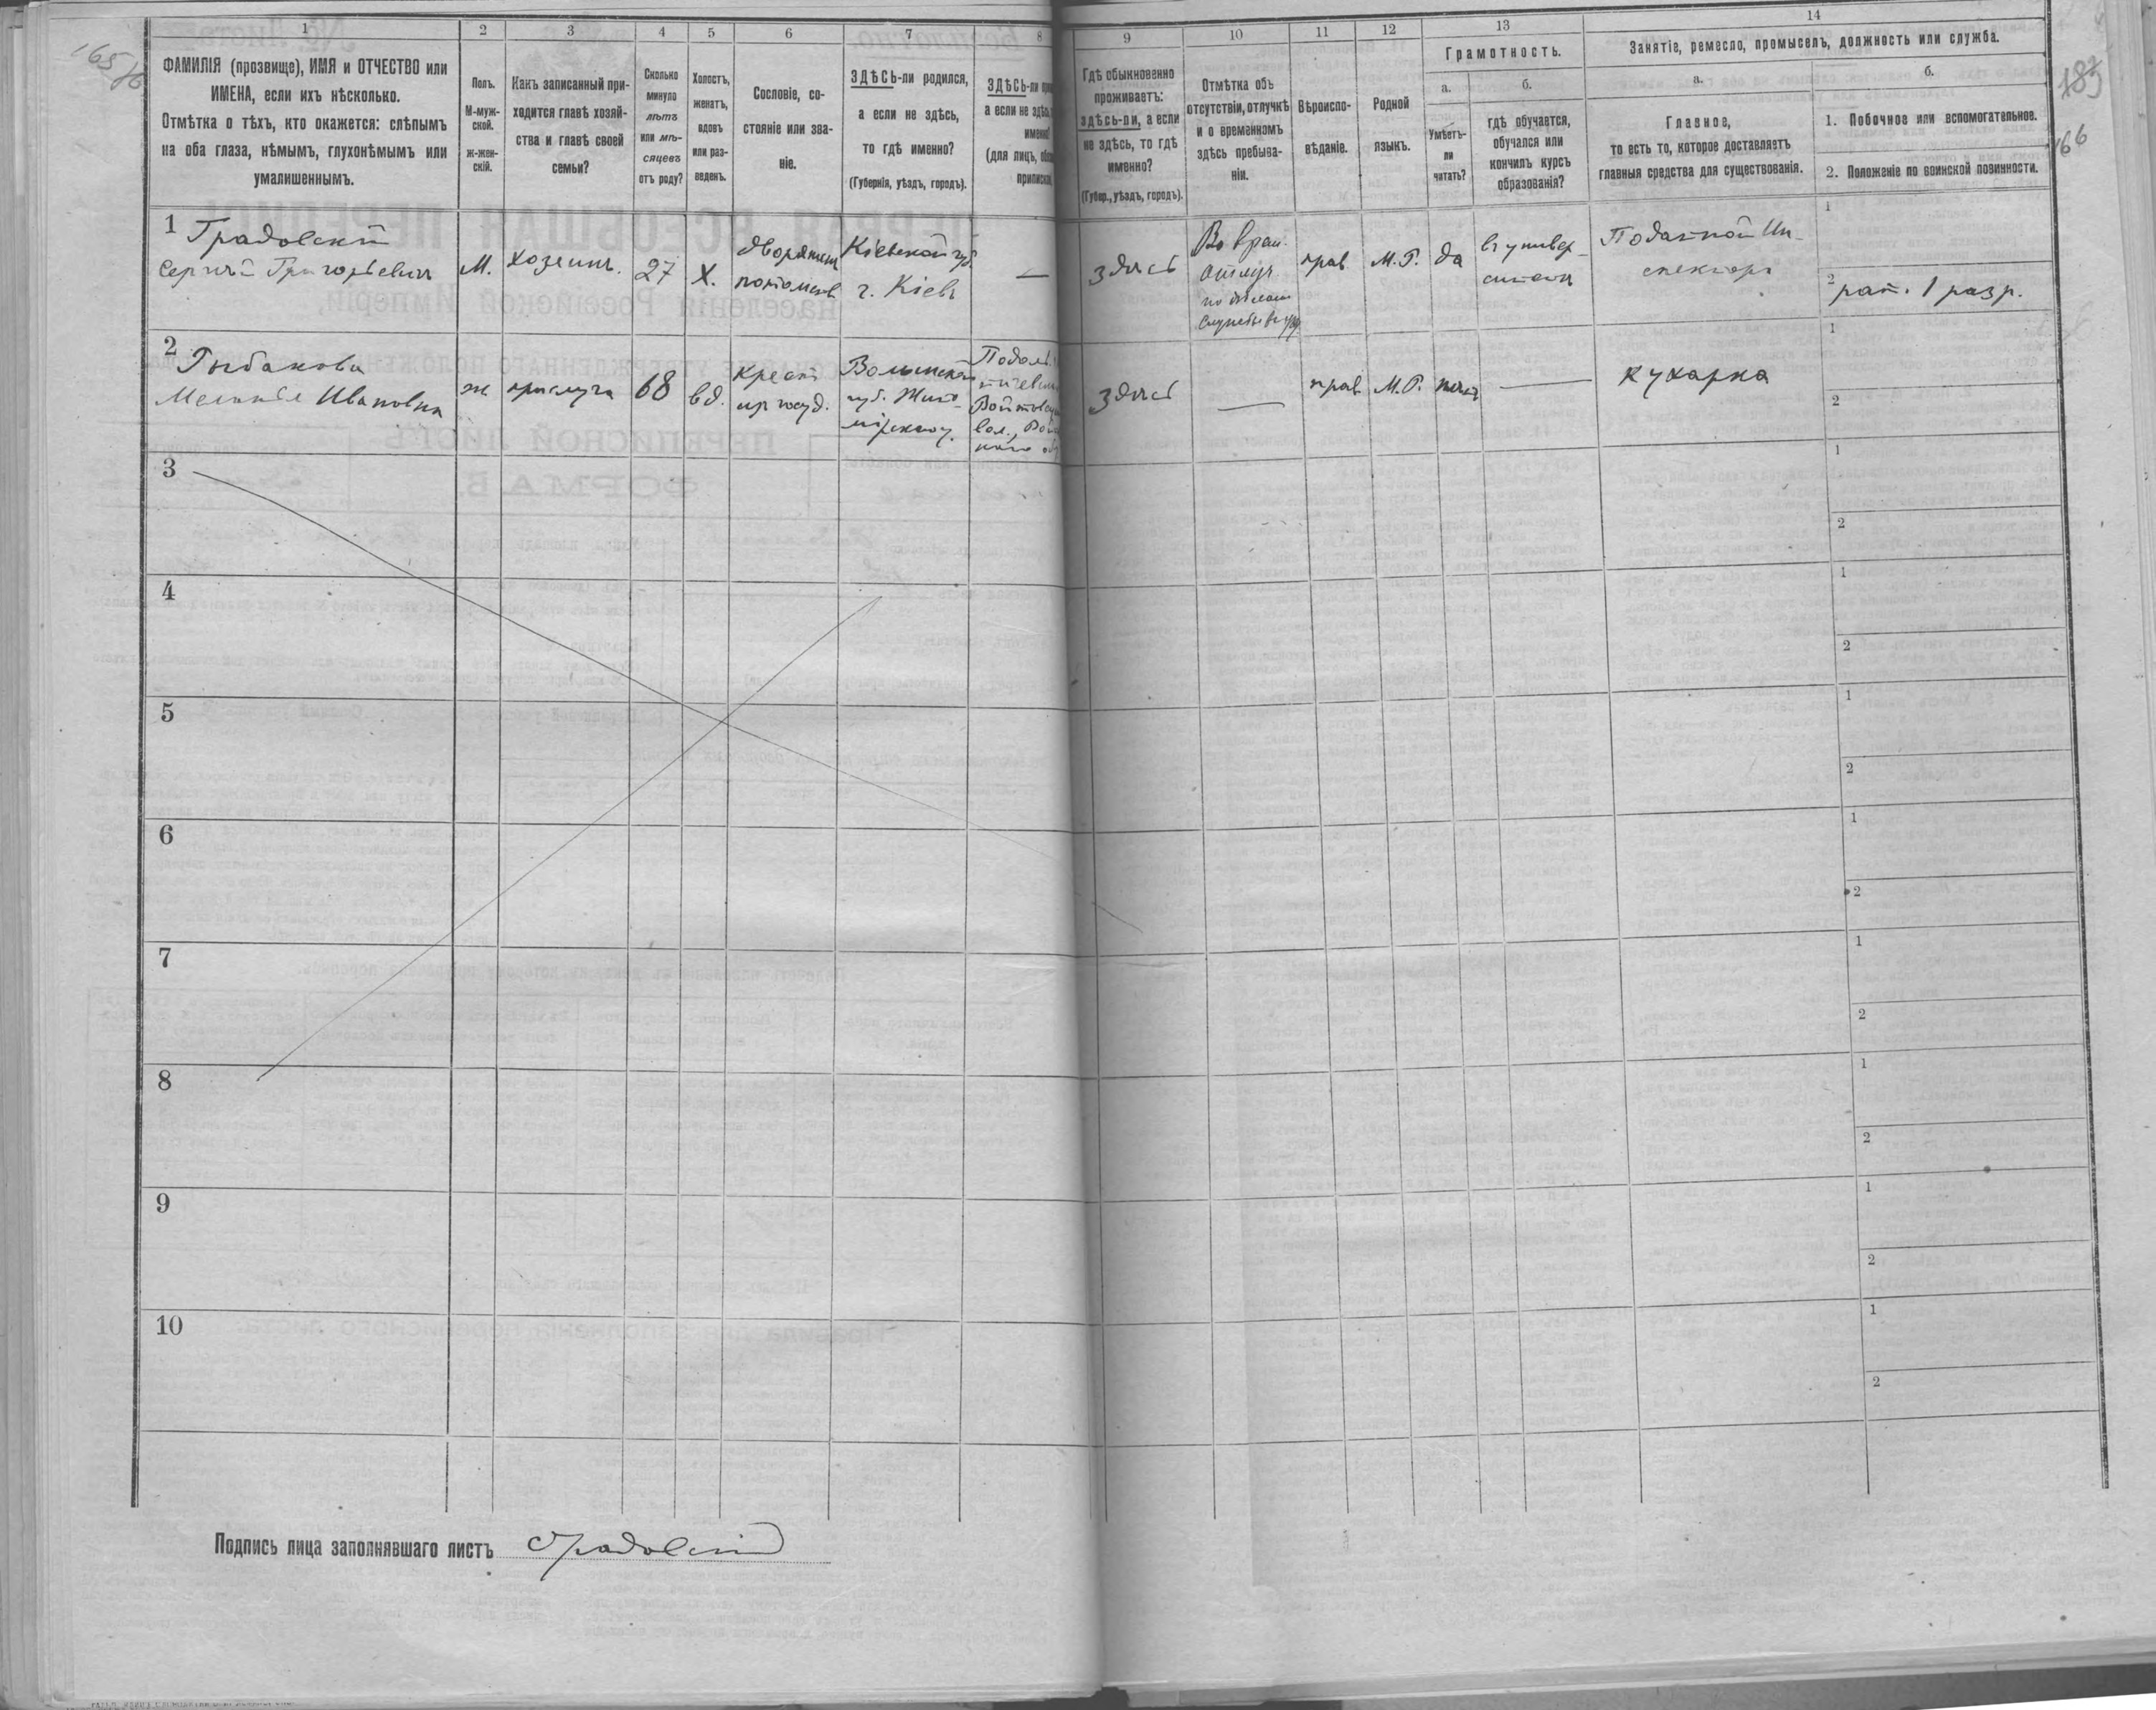 165
1
2
3
4
5
6
7
8
ФАМИЛІЯ (прозвище), ИМЯ и ОТЧЕСТВО или
ИМЕНА, если ихъ нѣсколько.
Отмѣтка о тѣхъ, кто окажется: слѣпымъ
на оба глаза, нѣмымъ, глухонѣмымъ или
умалишеннымъ.
Полъ.
М-муж-
ской.
ж-жен-
скій.
Какъ записанный при-
ходится главѣ хозяй-
ства и главѣ своей
семьи?
Сколько
минуло
лѣтъ
или мѣ-
сяцевъ
отъ роду?
Холостъ,
женатъ,
вдовъ
или раз-
веденъ.
Сословіе, со-
стояніе или зва-
ніе.
ЗДѢСЬ-ли родился,
а если не здѣсь,
то гдѣ именно?
(Губернія, уѣздъ, городъ).
ЗДѢСЬ-ли
а если не здѣсь,
именно?
(для лицъ,
приписки
9
10
11
12
13
14
Гдѣ обыкновенно
проживаетъ:
здѣсь-ли, а если
не здѣсь, то гдѣ
именно?
(Губер., уѣздъ, городъ).
Отмѣтка объ
отсутствіи, отлучкѣ
и о временномъ
здѣсь пребыва-
ніи.
Вѣроиспо-
вѣданіе.
Родной
языкъ.
Грамотность.
а.
б.
Умѣетъ-
ли
читать?
гдѣ обучается,
обучался или
кончилъ курсъ
образованія?
Занятіе, ремесло, промыселъ, должность или служба.
а.
б.
Главное,
то есть то, которое доставляетъ
главныя средства для существованія.
1. Побочное или вспомогательное.
2. Положеніе по воинской повинности.
166
1
Градовскій
Сергѣй Григорьевичъ
М.
хозяинъ.
27
Х.
дворянинъ
потомств.
Кіевской губ.
г. Кіевъ
—
здѣсь
Во врем.
отлуч.
по дѣламъ
службы въ
прав
М.Р.
да
въ универ-
ситетѣ
Податной Ин-
спекторъ
1
2
рат. 1 разр.
2
Рыбакова
Меланья Ивановна
ж
прислуга
68
вд.
крест
Волынской
губ. Жито-
мірскаго у.
Подол.
вол.,
здѣсь
—
прав
М.Р.
нѣтъ
—
кухарка
1
2
3
1
2
4
1
2
5
1
2
6
1
2
7
1
2
8
1
2
9
1
2
10
1
2
Подпись лица заполнявшаго листъ Градовскій